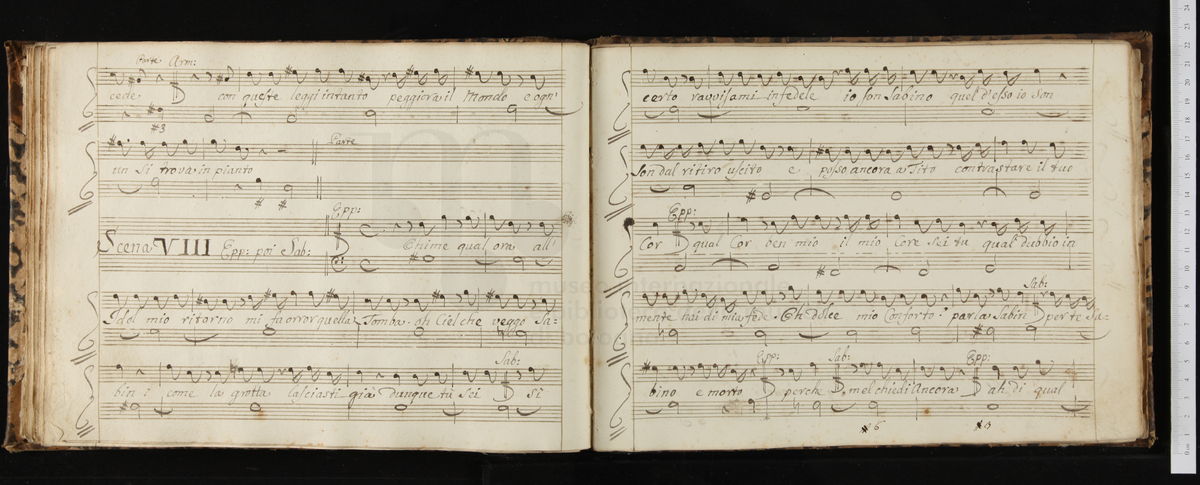 Parte Arm:
cede con queste leggi intanto peggiora il Mondo e ogn'
#3
un si trova in pianto
Parte
Scena VIII Epp: poi Sab:
Epp:
Ohime qual ora all'
Idol mio ritorno mi fa orror quella Tomba oh Ciel che veggo Sa=
Sab:
bin i come la grotta lasciasti già dunque tù sei Sì
certo ravvisami infedele io son Sabino quel d'esso io son
Son dal ritiro uscito e posso ancora a Tito contrastare il tuo
Epp:
Cor qual Cor ben mio il mio Core sei tu qual dubbio in
Sab:
mente hai di mia fede. Oh dolce mio Conforto: parla Sabin per te Sa=
Epp: Sab: Epp:
bino e morto perche mel chiedi Ancora ah di qual
#6
museo internazionale